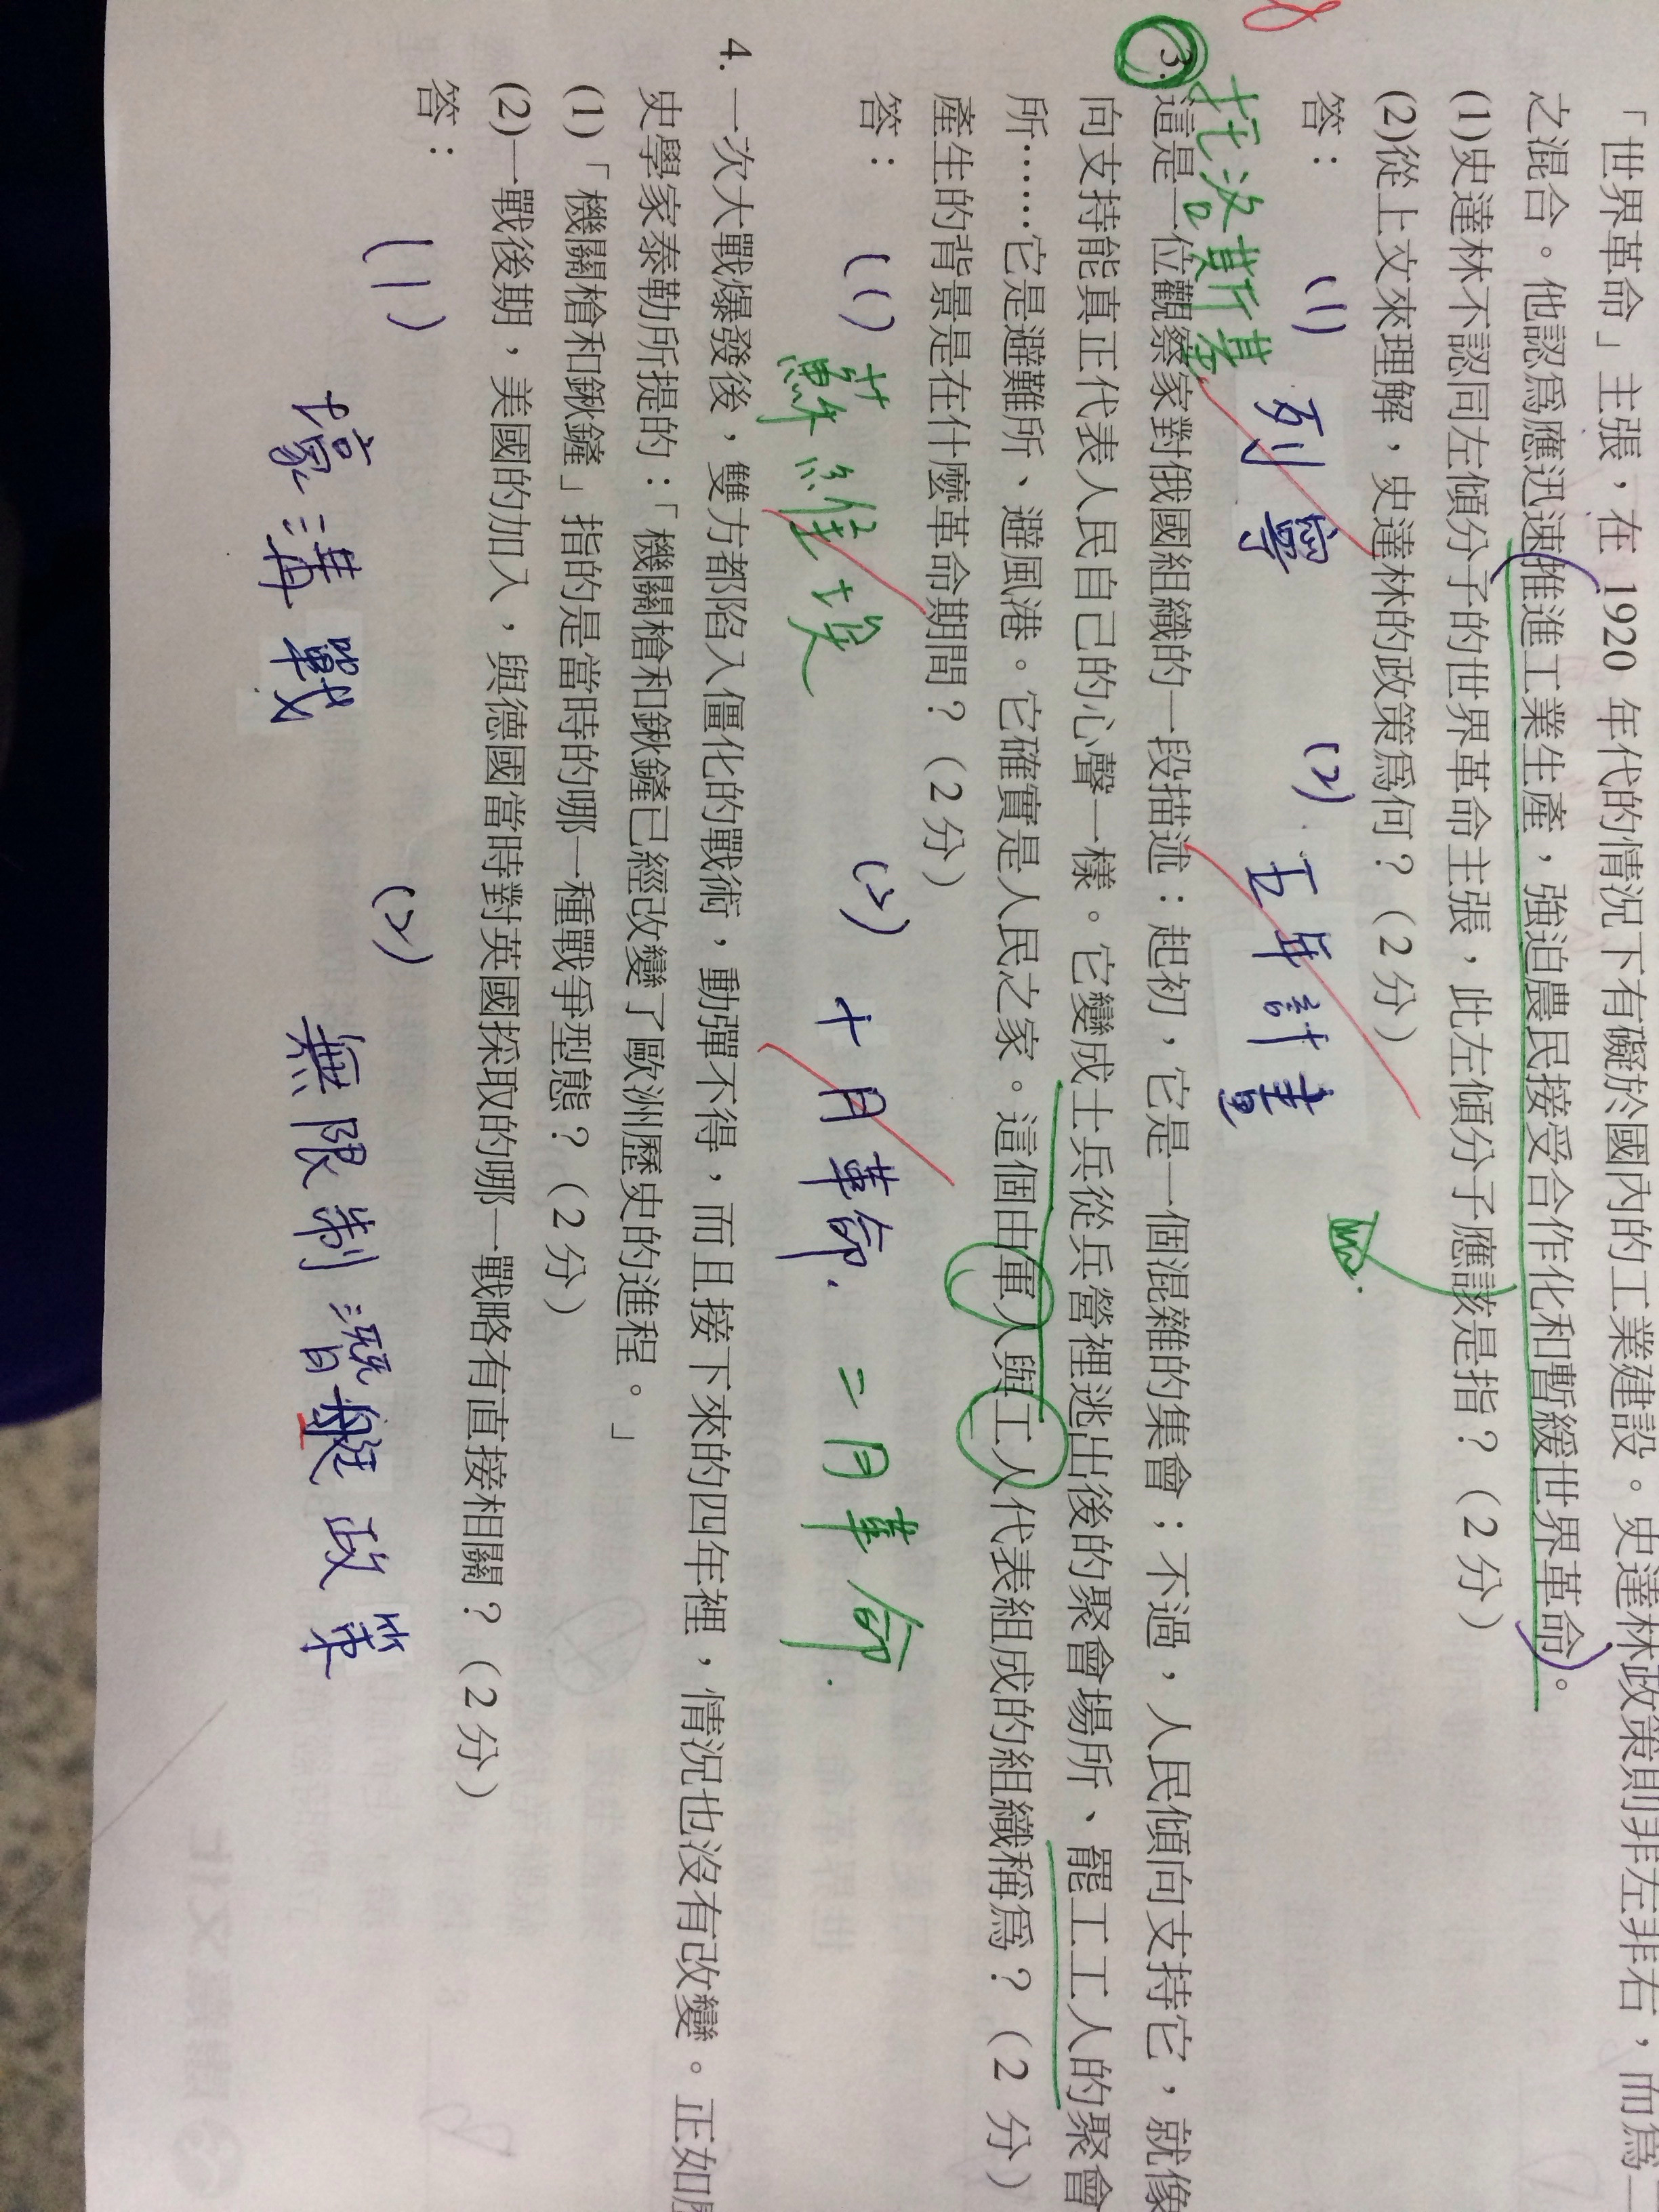 「世界革命」主張，在 1920 年代的情況下有礙於國內的工業建設。史達林政策則非左非右，而爲
之混合。他認爲應迅速推進工業生產，強迫農民接受合作化和暫緩世界革命。
(1)史達林不認同左傾分子的世界革命主張，此左傾分子應該是指？（2 分）
(2)從上文來理解，史達林的政策爲何？（2 分）
答： (1) 列寧 (2) 五年計畫
托洛斯基
3. 這是一位觀察家對俄國組織的一段描述：起初，它是一個混雜的集會；不過，人民傾向支持它，就像
向支持能真正代表人民自己的心聲一樣。它變成士兵從兵營裡逃出後的聚會場所、罷工工人的聚會
所……它是避難所、避風港。它確實是人民之家。這個由軍人與工人代表組成的組織稱爲？（2 分）
產生的背景是在什麼革命期間？（2 分）
答： (1) 蘇維埃 (2) 十月革命. 二月革命.
4. 一次大戰爆發後，雙方都陷入僵化的戰術，動彈不得，而且接下來的四年裡，情況也沒有改變。正如
史學家泰勒所提的：「機關槍和鍬鏟已經改變了歐洲歷史的進程。」
(1)「機關槍和鍬鏟」指的是當時的哪一種戰爭型態？（2 分）
(2)一戰後期，美國的加入，與德國當時對英國採取的哪一戰略有直接相關？（2 分）
答：
(1) 壕溝戰 (2) 無限制潛艇政策